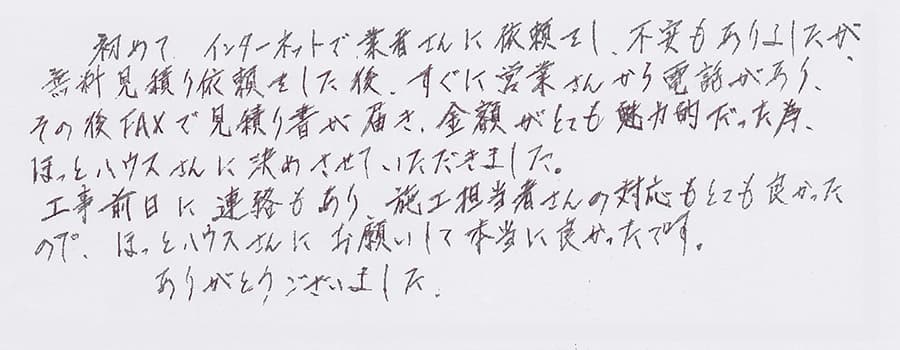 初めて インターネットで業者さんに依頼をし、不安もありましたが、
無料見積り依頼をした後、すぐに営業さんから電話があり、
その後FAXで見積り書が届き、金額がとても魅力的だった為、
ほっとハウスさんに決めさせていただきました。
工事前日に連絡もあり、施工担当者さんの対応もとても良かった
ので、ほっとハウスさんにお願いして本当に良かったです。
ありがとうございました。